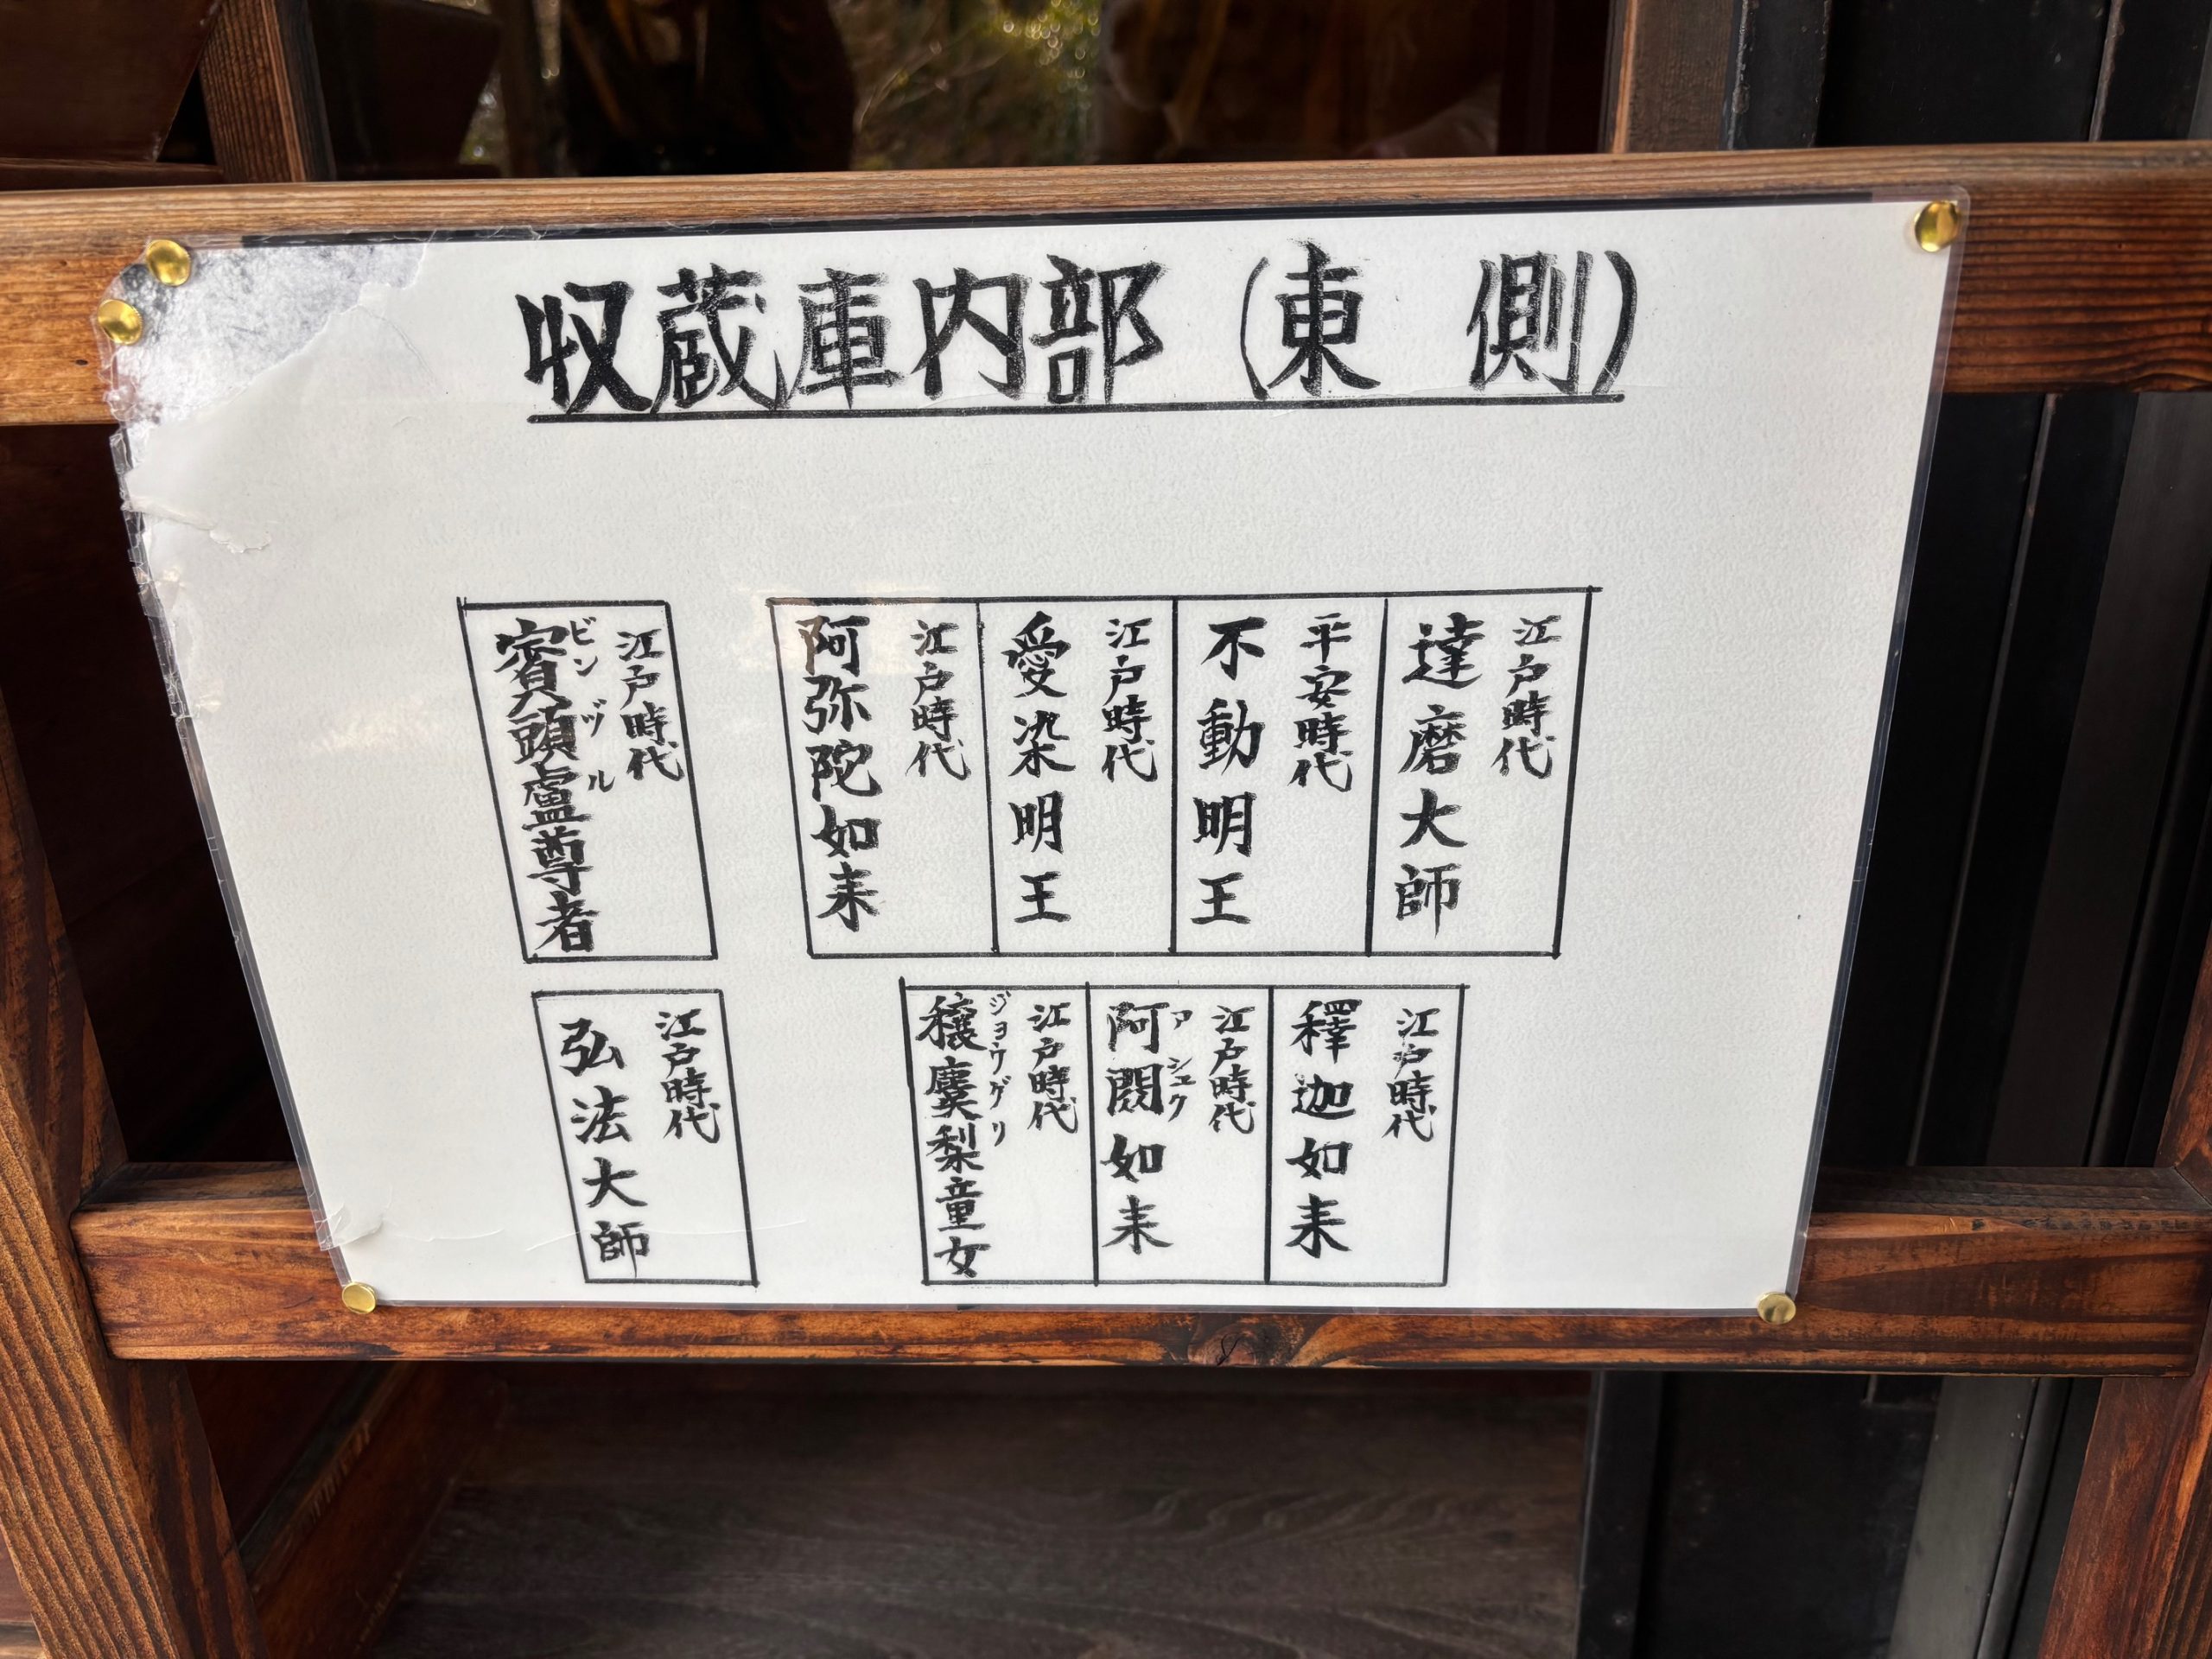 収蔵庫内部（東 側）
江戸時代
達磨大師
平安時代
不動明王
江戸時代
愛染明王
江戸時代
阿弥陀如来
江戸時代
ビンヅル
賓頭盧尊者
江戸時代
釋迦如来
江戸時代
アシュク
阿閦如来
江戸時代
ジョウゲリ
穣麌梨童女
江戸時代
弘法大師